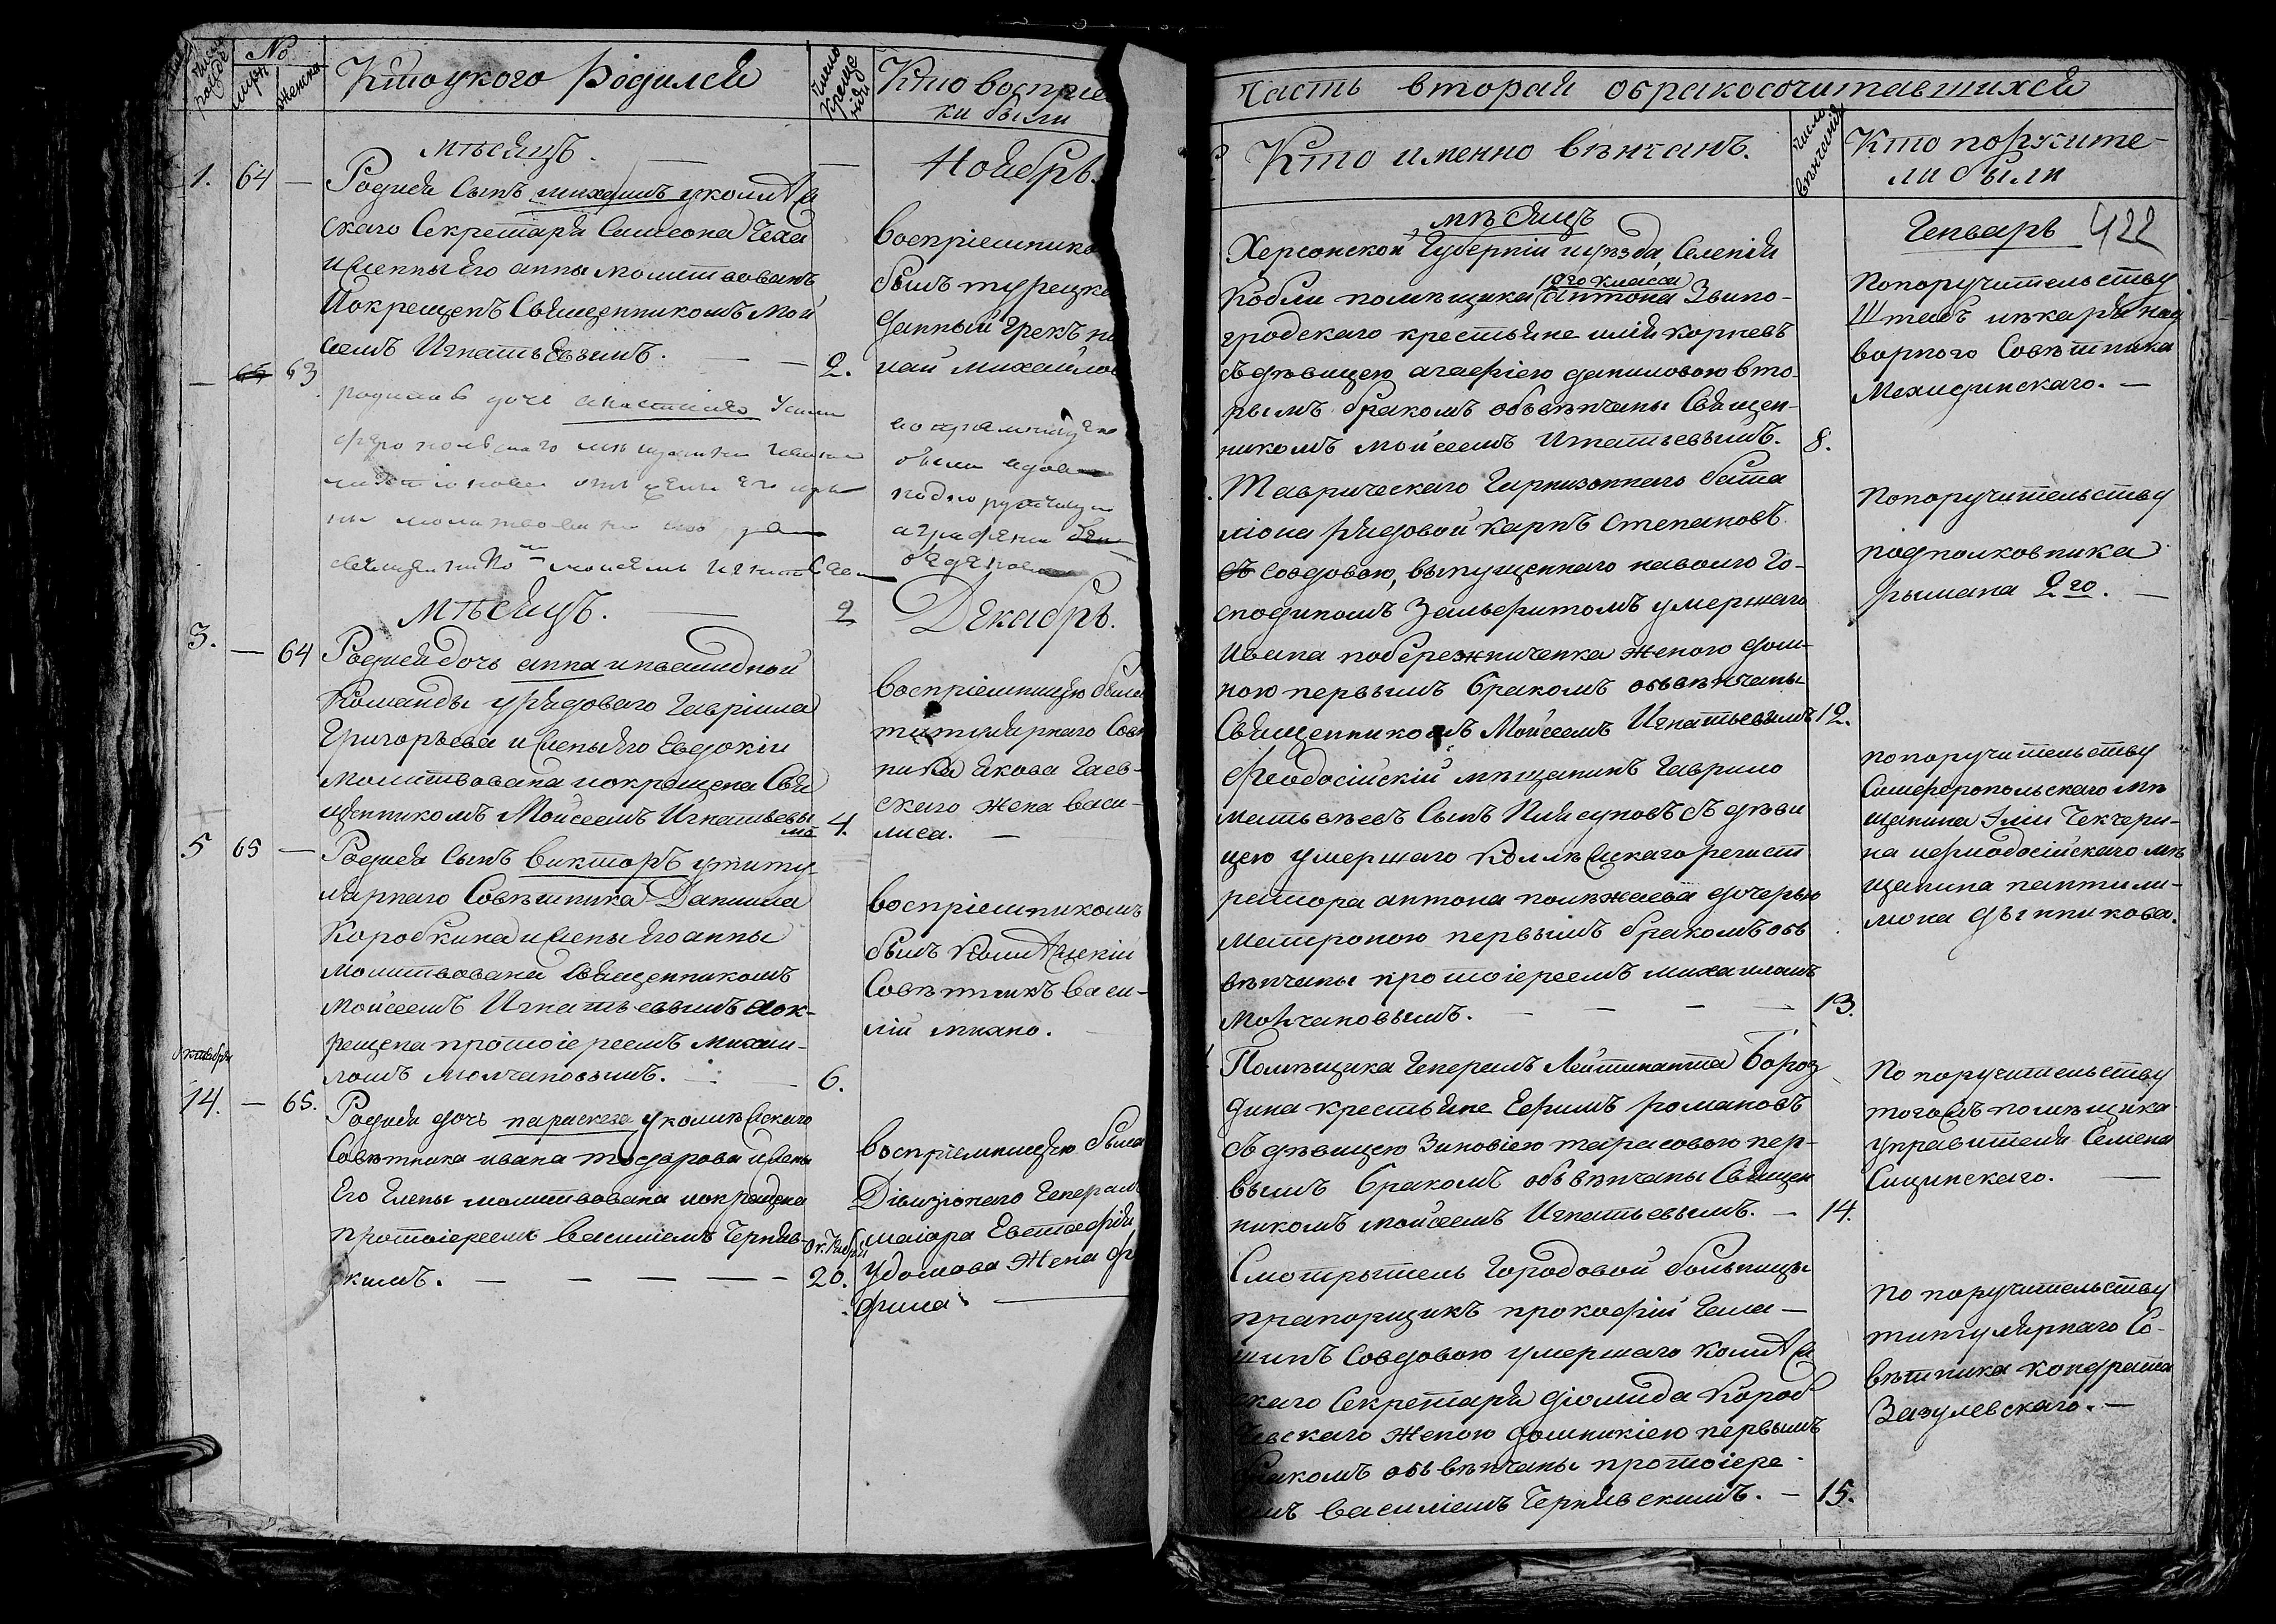 Число рожде
№
мужс
женска
Кто укого родился
Число крещенія
Кто воспріе
ки были
мѣсяцъ.
Ноября.
1. 64 —
Родися Сынъ михаилъ уколлѣ
скаго Секретаря Симеона Чеха
ижены Его анны молитвованъ
Покрещенъ Священникомъ Мои
сеемъ Игнатьевымъ. — — 2.
воспріемнико
былъ турецко
данный грекъ
най михайлов
— 63
родилась дочь анастасія у сим
ферополъскаго мѣщанина
жены Его ири
ны молитвована
священнико мъ моисеемъ Игнатьев
2
были вдова
подпоручица
аграфена
мѣсяцъ.
Декабрь.
3. — 64
Родися дочь анна инвалидной
Команды урядоваго Гавріила
Григорьева ижены Его Евдокіи
молитвована покрещена Свя
щенникомъ Моисеемъ Игнатьевы
мъ 4.
воспріемницею была
титулярнаго Сов
ника Якова Гаев-
скаго жена васи-
лиса. —
5 65 —
Родися Сынъ викторъ утиту-
лярнаго Совѣтника Даниила
Коробкина ижены Его анны
молитвована Священникомъ
Моисеемъ Игнатьевымъ апок-
рещена протоіереемъ михаи-
ломъ молчановымъ. — 6.
воспріемникомъ
былъ Коллѣжскій
Совѣтникъ Васи-
лій мкано.
октября
14. — 65.
Родися дочь параскева уколлѣжскаго
Совѣтника ивана тодарова ижены
Его Елены молитвована покрещена
протоіереемъ василіемъ Чернявс-
кимъ. — — — — —
Октября
20.
воспріемницею была
Дивизіонаго Генералъ
маіора Евстафія
Удомова жена
фима.
Часть вторая обракосочитавшихся
Кто именно вѣнчанъ.
Число вѣнчанія
Кто поржчите-
ли были
мѣсяцъ
Генварь 422
Херсонской Губерніи иуѣзда, Селенія
9го класса
Кобли помѣщика антона Звино-
гродскаго крестьяне илія корневъ
съдѣвицею агафіею даниловою вто-
рымъ бракомъ обвѣнчаны Священ-
никомъ моисеемъ Игнатьевымъ. 8.
Попоручительству
Штабъ лѣкаря над
ворного Совѣтника
Мехидинскаго. —
Таврическаго Гарнизоннаго бата
ліона рядовой карпъ степановъ
совдовою, выпущеннаго наволю Го-
сподиномъ Зальфритомъ умершаго
Ивана побережниченка женою дом-
ною первымъ бракомъ объвѣнчаны
Священникомъ Моисеемъ Игнатьевымъ 12.
Попоручительству
подполковника
рымана 2го. —
Феодосійскій мѣщанинъ Гаврило
матьвѣевъ Сынъ Плясуновъ съдѣви
цею умершаго Коллѣжскаго регист
ратора антона полѣжаева дочерью
матроною первымъ бракомъ объ
вѣнчаны протоіереемъ михаиломъ
Молчановымъ. — — — 13.
попоручительству
Симферопольскаго мѣ
щанина Iліи Чекчери-
на ифеодосійскаго мѣ
щанина пантили-
мона дѣнникова.
Помѣщика Генералъ Лейтинанта Бороз
дина крестьяне Ефимъ романовъ
съдѣвицею Зиновіею тарасовою пер-
вымъ бракомъ объвѣнчаны Священ
никомъ моисеемъ Игнатьевымъ. — 14.
По поручительству
тогожъ помѣщика
управителя Семена
Сицинскаго. —
Смотрытель Городовой больницы
прапорщикъ прокофій Гала-
шинъ Совдовою умершаго коллѣж
скаго Секретаря діомида Короб
чевскаго женою домникіею первымъ
бракомъ объвѣнчаны протоіере-
емъ василіемъ Чернявскимъ. — 15.
По поручительству
титулярнаго Со-
вѣтника кондрата
Вазулевскаго. —